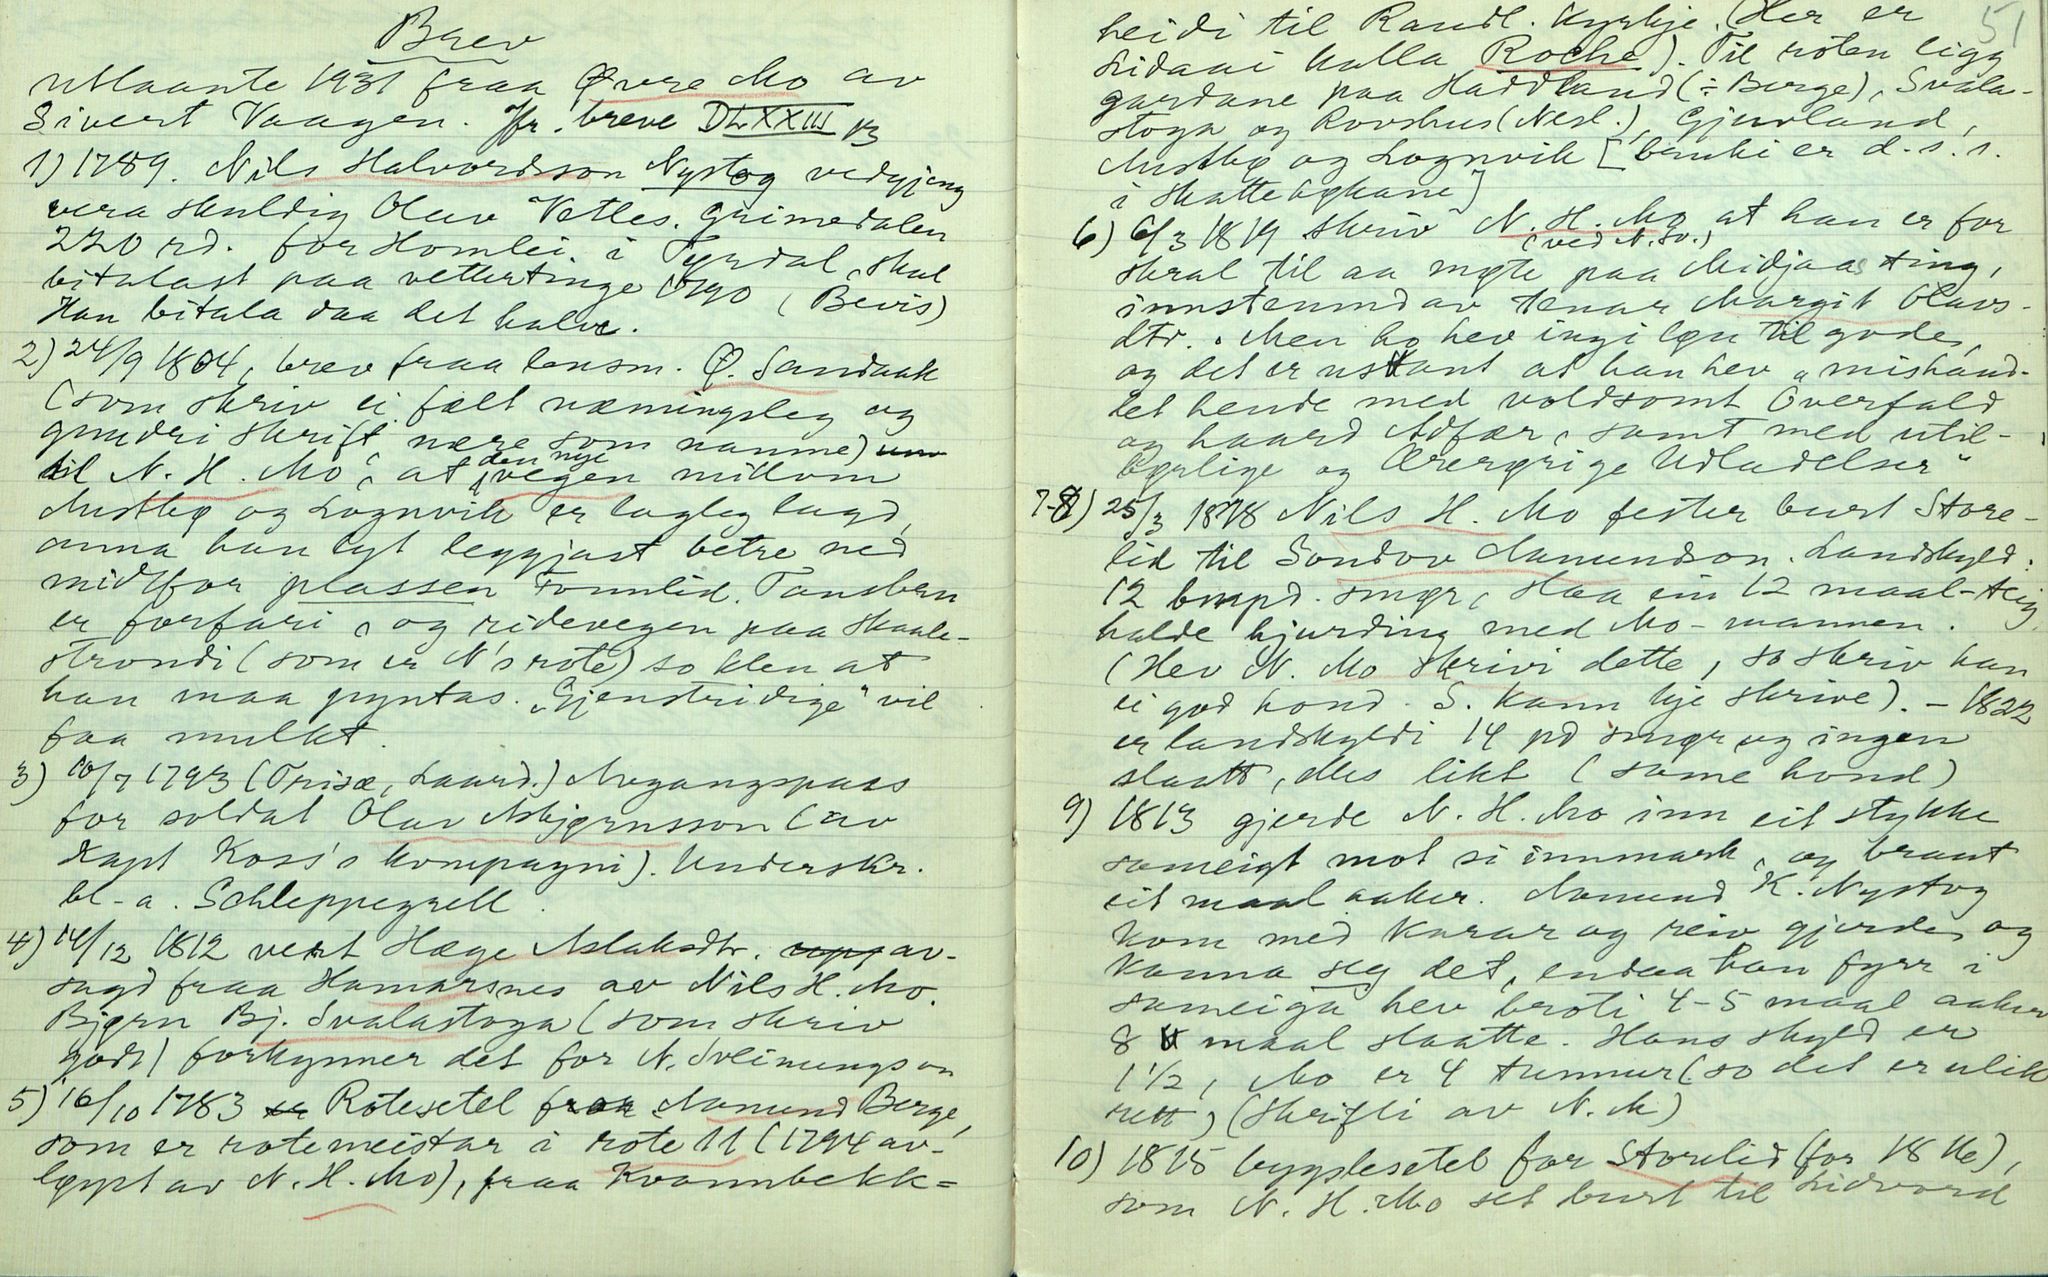 Brev
utlaante 1931 fraa Øvre Mo av
Sivert Vaagen. Jfr. breve DLXXIII 13
1) 1789. Nils Halvordsson Nystog vedgjeng
vera skuldig Olav Vetles. Grimedalen
220 rd. for Homlei i Tyrdal, skal
bitalast paa vettertinge 1790 (Bevis)
Han bitala daa det halve.
2) 24/9 1804, brev fraa lensm. Ø. Sandaak
(som skriv ei fælt næmingsleg og
grundri skrift, nære som namne)
til N. H. Mo, at den nye vegen millom
Austbø og Lognvik er lagleg lagd,
anna han lyt leggjast betre ned
midtfor plassen Tonnlid. Tansbrun
er forfari, og ridevegen paa Skaale-
strondi (som er N's rote) so klen at
han maa pyntas. "Gjenstridige" vil
faa mulkt.
3) 10/7 1793 (Trisæ, Laard.) Avgangspass
for soldat Olav Asbjørnsson (av
Kapt Koss's kompagni). Underskr.
bl-a. Schleppegrell.
4) 14/12 1812 vert Hæge Aslaksdtr. av-
sagd fraa Hamarsnes av Nils H. Mo.
Bjørn Bj. Svalastoga (som skriv
godt) forkynner det for N. Sveinungson
5) 16/10 1783 Rotesetel fraa Aamund Berge,
som er rotemeistar i rote 11 (1794 av-
løyst av N. H. Mo), fraa Kvannbekk=
51
heidi til Raudl. kyrkje. (Her er
sidaai kalla Roche). Til roten ligg
gardane paa Haddland (÷ Berge), Svala-
stoga og Rovshus (Nesl.), Gjuvland,
Austbø og Lognvik [bruki er d. s. s.
i skattebøkane]
6) 6/3 1819 skriv N. H. Mo at han er for
skral til aa møte (ved N. Sv.) paa Midjaas ting,
innstemnd av tenar Margit Olavs-
dtr. Men ho hev ingi løn til gode,
og det er usant at han hev "mishand-
let hende med voldsomt Overfald
og haard Adfær, samt med util-
børlige og Ærerørige Udladelser"
7-8) 25/3 1818 Nils H. Mo fester burt Store-
lid til Sondov Aamundson. Landskyld:
12 bmpd. smør, slaa ein 12 maal-teig,
halde hjurding med Mo-mannen.
(Hev N. Mo skrivi dette, so skriv han
ei god hond. S. kann kje skrive). - 1822
er landskyldi 14 pd smør og ingen
slaatt, elles likt (same hond)
9) 1813 gjerde N. H. Mo inn eit stykke
sameigt mot si innmark, og braut
eit maal aaker. Aamund K. Nystog
kom med karar og reiv gjerde og
kanna seg det, endaa han fyrr i
sameiga hev broti 4-5 maal aaker
8 maal slaatte. Hans skyld er
1 1/2, Mo er 4 tunnur (so det er ulik
rett) (Skrifti av N. M)
10) 1815 bygslesetel for Storelid (for 1816),
som N. H. Mo set burt til Lidvord